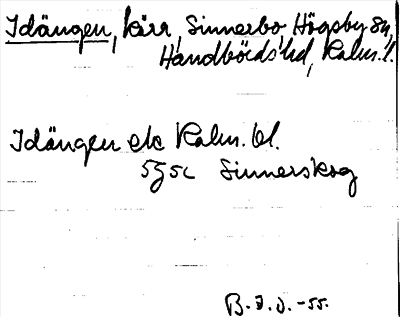 Idängen, kärr, Sinnerbo Högsby Sn,
Handbörds hd, Kalm. l.
Idängen ek Kalm. bl.
5g5c Sinnerskog
B.I.J. -55.